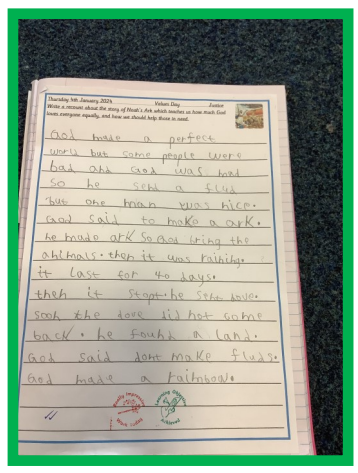 Thursday 4th January 2024 Values Day Junior
Write a recount about the story of Noah's Ark which teaches us how much God
loves everyone equally, and how we should help those in need.
God made a perfect
world but some people were
bad and God was mad
So he send a flud
but one man was nice.
God said to make a ark.
he made ark So bring the
animals. then it was raining.
it last for 40 days.
then it stopt. he sent dove.
soon the dove did not come
back. he found a land.
God said dont make fluds.
God made a rainboa.
Really Impressive
Work Today
Learning Objective
Achieved